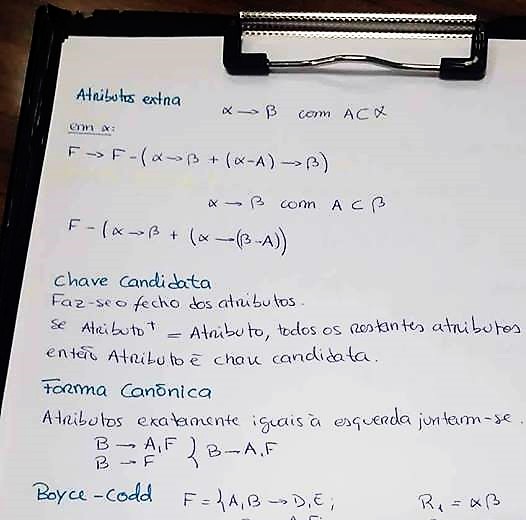 Atributos extra
α → β com A ⊂ α
em α:
F → F - (α → β + (α-A) → β)
α → β com A ⊂ β
F - (α → β + (α → (β-A))
Chave candidata
Faz-se o fecho dos atributos.
Se Atributo⁺ = Atributo, todos os restantes atributos
então Atributo é chave candidata.
Forma Canónica
Atributos exatamente iguais à esquerda juntam-se.
B → A,F } B → A,F
B → F
Boyce-Codd F = {A,B → D,E; R₁ = αβ